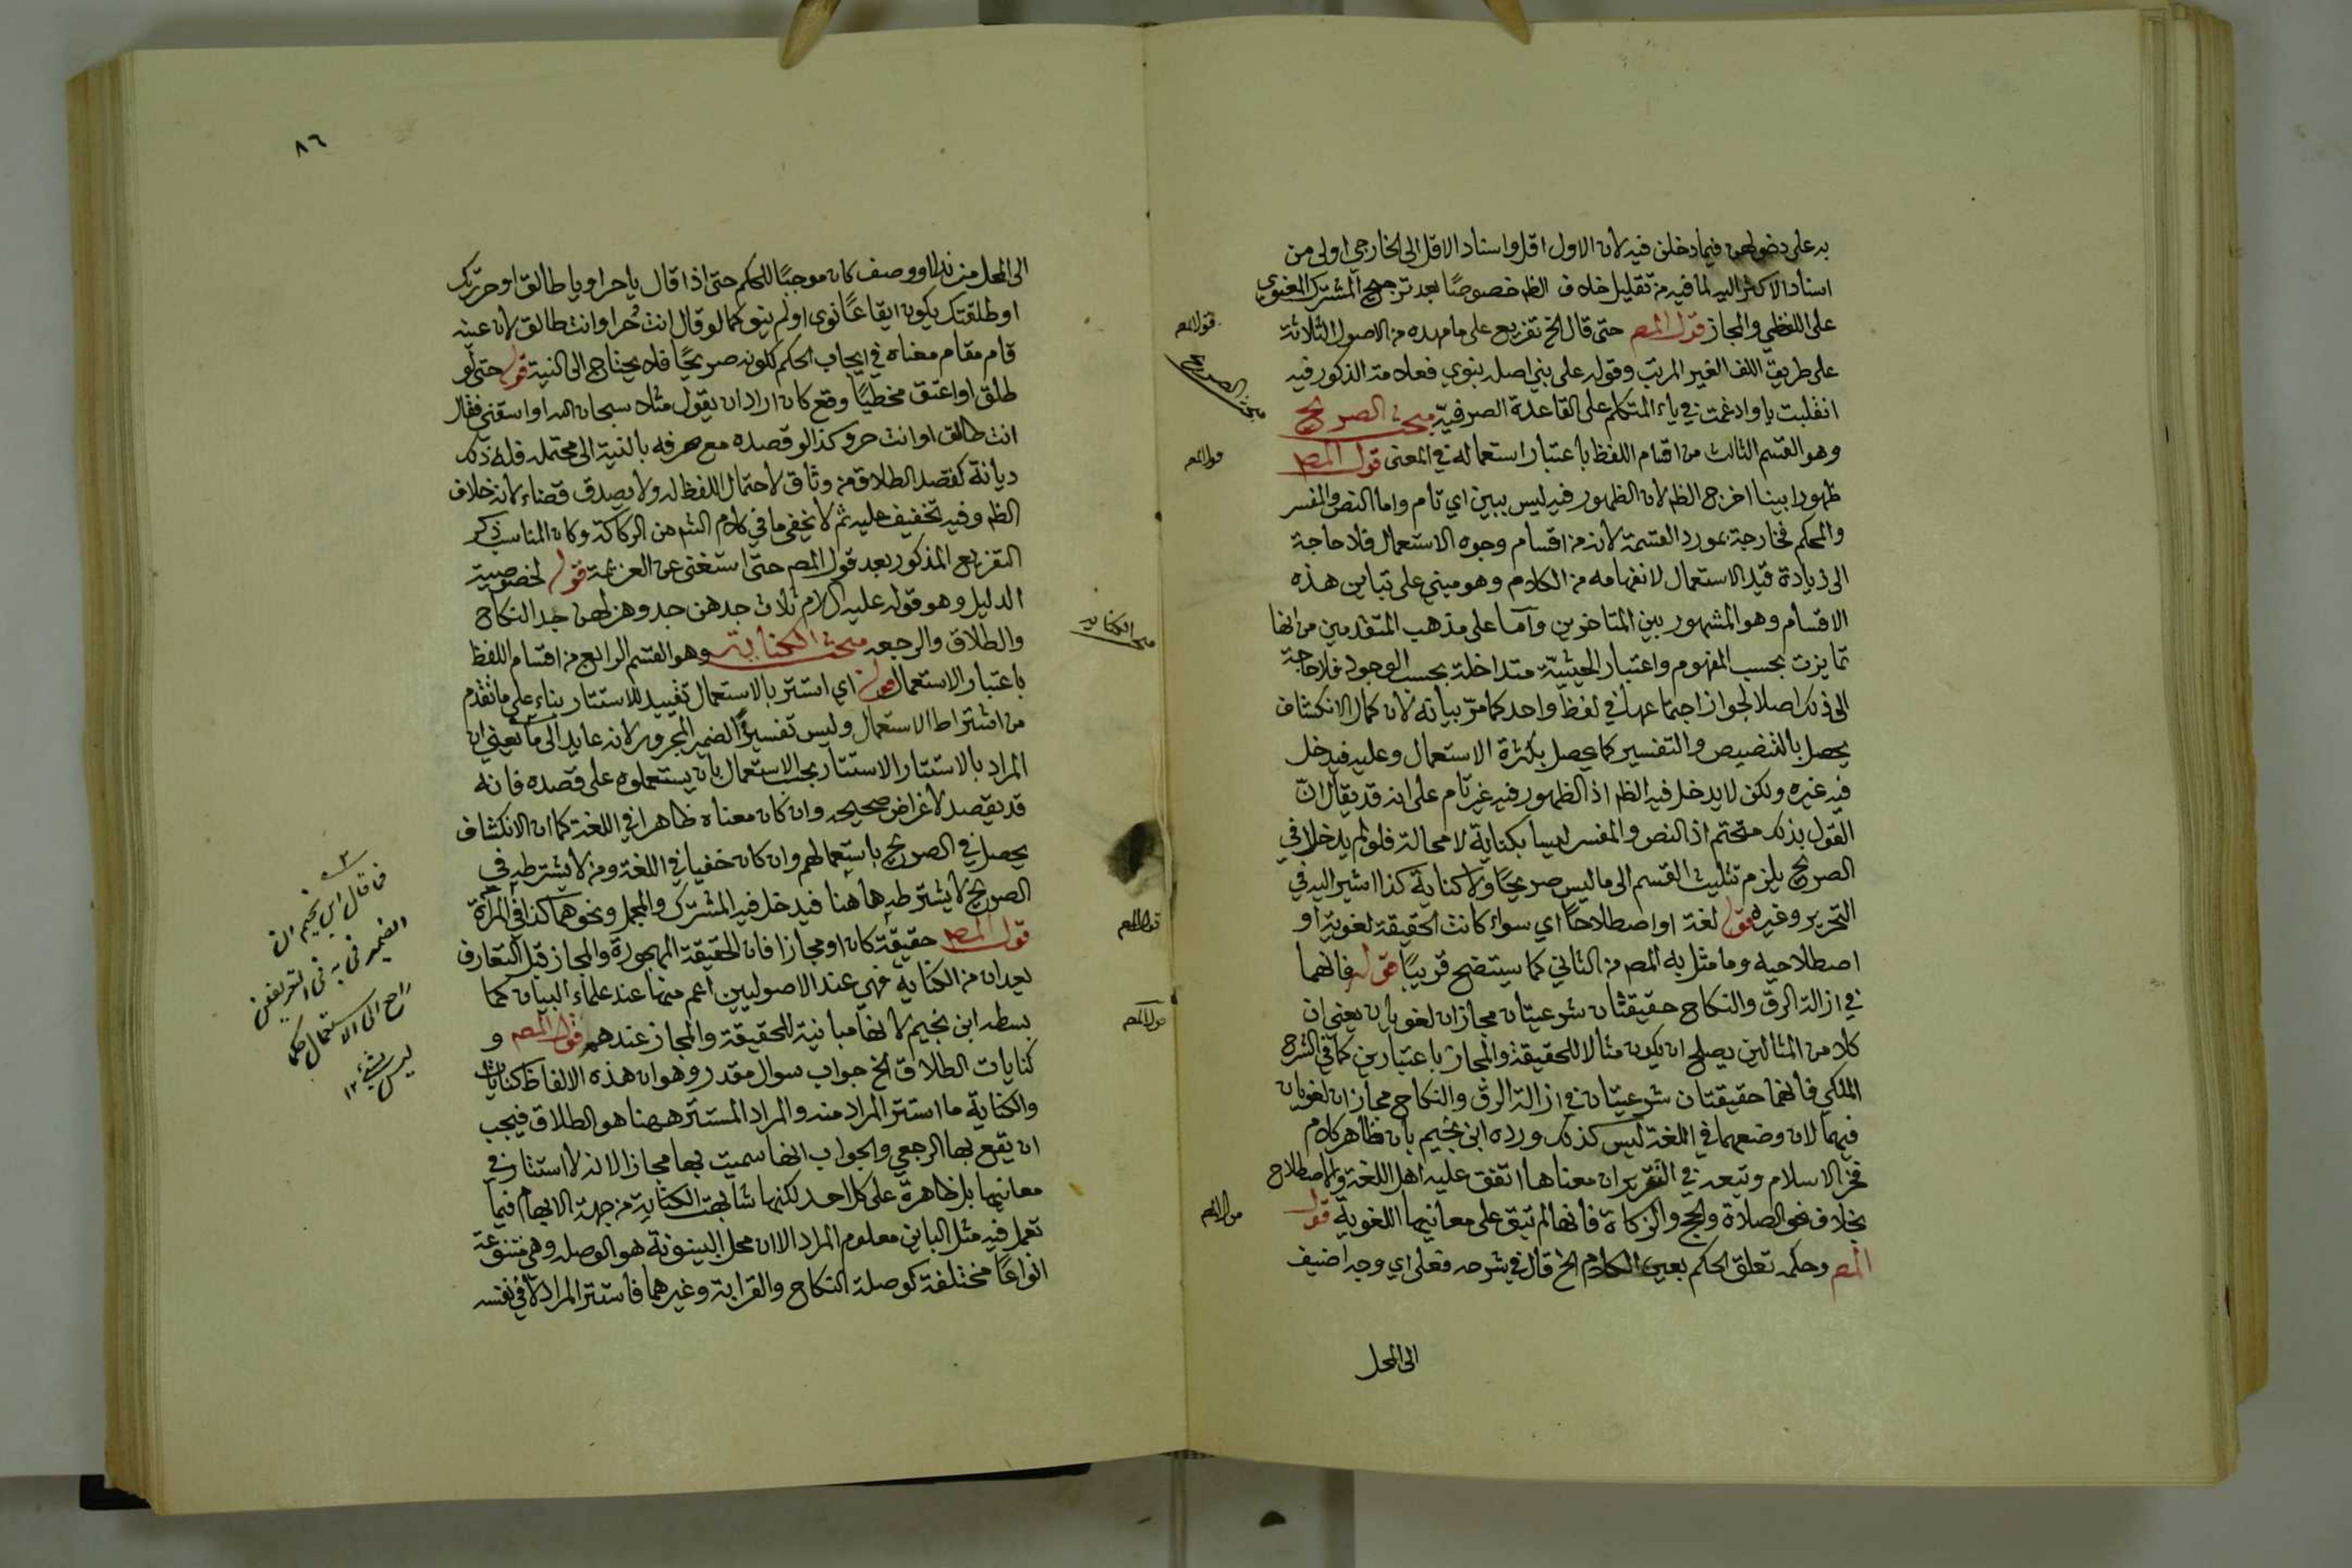 به على دخولهن فيما دخلن فيه لان الاول اقل واسناد الاقل الى الخارجي اولى من
اسناد الاكثر اليه لما فيه من تقليل خلاف الظه خصوصًا بعد ترجيح المشترك المعنوي
على اللفظي والمجاز قول المصـ حتى قال الخ تفريع على ما مهده من الاصول الثلاثة
على طريق اللف الغير المرتب وقوله على بني اصله بنوي فعلامة الذكور فيه
انقلبت ياء وادغمت في ياء المتكلم على القاعدة الصرفية مبحث الصريح
وهو القسم الثالث من اقسام اللفظ باعتبار استعماله في المعنى قول المصـ
ظهورا بينا اخرج الظه لان الظهور فيه ليس ببين اي تام واما النص والمفسر
والمحكم فخارجة بمورد القسمة لانه من اقسام وجوه الاستعمال فلا حاجة
الى زيادة قيد الاستعمال لانفهامه من الكلام وهو مبني على تباين هذه
الاقسام وهو المشهور بين المتاخرين وآما على مذهب المتقدمين من انها
تمايزت بحسب المفهوم واعتبار الحيثية متداخلة بحسب الوجود فلا حاجة
الى ذلك اصلا لجواز اجتماعها في لفظ واحد كما مرّ بيانه لان كمال الانكشاف
يحصل بالتنصيص والتفسير كما يحصل بكثرة الاستعمال وعليه فيدخل
فيه غيره ولكن لا يدخل فيه الظه اذ الظهور فيه غير تام على انه قد يقال انّ
القول بذلك متحتم اذ النص والمفسر ليسا بكناية لا محالة فلو لم يدخلا في
الصريح يلزم تثليث القسم الى ما ليس صريحًا ولا كناية كذا اشير اليه في
التحرير وغيره قوله لغة او اصطلاحًا اي سواء كانت الحقيقة لغوية او
اصطلاحيه وما مثل به المصـ من الثاني كما يستضح قريبًا قوله فانهما
في ازالة الرق والنكاح حقيقتان شرعيتان مجازان لغويان يعني ان
كلا من المثالين يصلح ان يكون مثالا للحقيقة والمجاز باعتبارين كما في الشرح
الملكي فانهما حقيقتان شرعيتان في ازالة الرق والنكاح مجازان لغويان
فيهما لان وضعهما في اللغة ليس كذلك ورده ابن نجيم بان ظاهر كلام
فخر الاسلام وتبعه في التقرير ان معناهما اتفق عليه اهل اللغة والاصطلاح
بخلاف نحو الصلاة والحج والزكاة فانها لم تبق على معانيها اللغوية قول
المصـ وحكمه تعلق الحكم بعين الكلام الخ قال في شرحه فعلى اي وجه اضيف
الى المحل
قول المصـ
مبحث الصريح
قول المصـ
قول المصـ
٨٦
الى المحل من نداء او وصف كان موجبًا للحكم حتى اذا قال يا حر او يا طالق او حررتك
او طلقتك يكون ايقاعًا نوى او لم ينو كما لو قال انت حُر او انت طالق لان عينه
قام مقام معناه في ايجاب الحكم لكونه صريحًا فلا يحتاج الى النية قوله حتى لو
طلق او اعتق مخطيًا وقع كان اراد ان يقول مثلا سبحان الله او اسقني فقال
انت طالق او انت حر وكذا لو قصده مع صرفه بالنية الى محتمله فله ذلك
ديانة كقصد الطلاق من وثاق لاحتمال اللفظ له ولا يصدق قضاء لانه خلاف
الظه وفيه تخفيف عليه ثم لا يخفى ما في كلام الشـ من الركاكة وكان المناسب ذكر
التفريع المذكور بعد قول المصـ حتى استغنى عن العزيمة قوله لخصوصية
الدليل وهو قوله عليه السلام ثلاث جدهن جد وهزلهن جد النكاح
والطلاق والرجعه مبحث الكناية وهو القسم الرابع من اقسام اللفظ
باعتبار الاستعمال قوله اي استتر بالاستعمال تقييد للاستتار بناء على ما تقدم
من اشتراط الاستعمال وليس تفسيرًا لضمير المجرور لانه عايد الى ما يعني ان
المراد بالاستتار الاستتار بحسب الاستعمال بان يستعملوه على قصده فانه
قد يقصد لاغراض صحيحه وان كان معناه ظاهرا في اللغة كما ان الانكشاف
يحصل في الصريح باستعمالهم وان كان خفيا في اللغة ومن لا يشترطه في
الصريح لا يشترطه ها هنا فيدخل فيه المشترك والمجمل ونحوهما كذا في المرآة
قول المصـ حقيقة كان او مجازا فان الحقيقة المهجورة والمجاز قبل التعارف
يعدان من الكناية فهي عند الاصوليين اعم منها عند علماء البيان كما
بسطه ابن نجيم لانها مباينة للحقيقة والمجاز عندهم قول المصـ و
كنايات الطلاق الخ جواب سوال مقدر وهو ان هذه الالفاظ كنايات
والكناية ما استتر المراد منه والمراد المستتر ههنا هو الطلاق فيجب
ان يقع بها الرجعي والجواب انها سميت بها مجازا لانه لا استتار في
معانيها بل ظاهرة على كل احد لكنها شابهت الكناية من جهة الابهام فيما
تعمل فيه مثل الباين معلوم المراد الا ان محل البينونة هو الوصله وهي متنوعة
انواعًا مختلفة كوصلة النكاح والقرابة وغيرهما فاستتر المراد لا في نفسه
مبحث الكناية
قول المصـ
قول المصـ
فما قال ابن نجيم ان
الضمير في به في التعريفين
راجع الى الاستعمال حكما
ليس بشيء ١٢